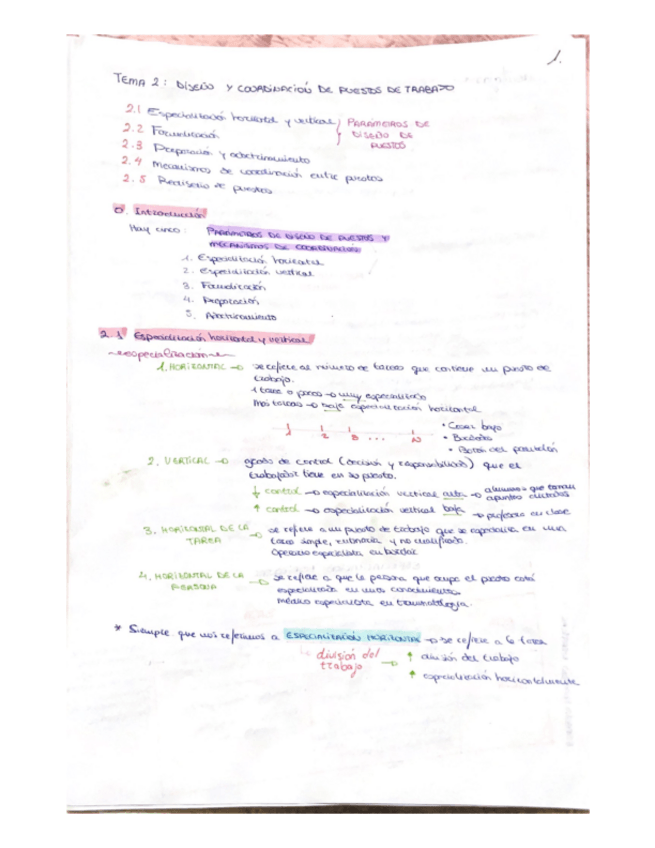 1.
TEMA 2: DISEÑO Y COORDINACIÓN DE PUESTOS DE TRABAJO
2.1 Especialización horizontal y vertical
2.2 Formalización
2.3 Preparación y adoctrinamiento
2.4 Mecanismos de coordinación entre puestos
2.5 Rediseño de puestos
PARÁMETROS DE
DISEÑO DE
PUESTOS
0. Introducción
Hay cinco: PARÁMETROS DE DISEÑO DE PUESTOS Y
MECANISMOS DE COORDINACIÓN
1. Especialización horizontal
2. Especialización vertical
3. Formalización
4. Preparación
5. Adoctrinamiento
2.1 Especialización horizontal y vertical
especialización
1. HORIZONTAL → se refiere al número de tareas que contiene un puesto de
trabajo.
1 tarea o pocas → muy especializado
Más tareas → baja especialización horizontal
1 2 3 ... N
• Coser bajo
• Bolsillos
• Botón del pantalón
2. VERTICAL → grado de control (decisión y responsabilidad) que el
trabajador tiene en su puesto.
↓ control → especialización vertical alta → alumnos que toman
apuntes dictados
↑ control → especialización vertical baja → profesora en clase
3. HORIZONTAL DE LA
TAREA → se refiere a un puesto de trabajo que se especializa en una
tarea simple, rutinaria y no cualificada.
Operario especialista en bordar.
4. HORIZONTAL DE LA
PERSONA → se refiere a que la persona que ocupa el puesto está
especializada en unos conocimientos.
Médico especialista en traumatología.
* Siempre que nos referimos a ESPECIALIZACIÓN HORIZONTAL → se refiere a la tarea
división del
trabajo → ↑ división del trabajo
↑ especialización horizontalmente